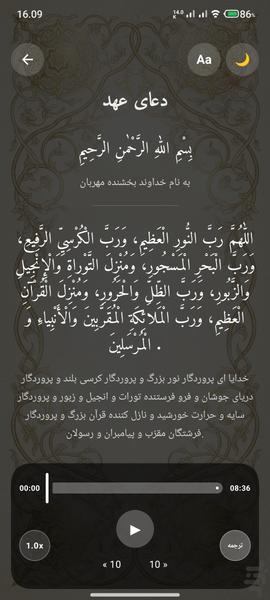 16.09
14.0 K/s 86%
Aa
دعای عهد
بِسْمِ اللهِ الرَّحْمٰنِ الرَّحِيمِ
به نام خداوند بخشنده مهربان
اللَّهُمَّ رَبَّ النُّورِ الْعَظِيمِ، وَرَبَّ الْكُرْسِيِّ الرَّفِيعِ،
وَرَبَّ الْبَحْرِ الْمَسْجُورِ، وَمُنْزِلَ التَّوْرَاةِ وَالْإِنْجِيلِ
وَالزَّبُورِ، وَرَبَّ الظِّلِّ وَالْحَرُورِ، وَمُنْزِلَ الْقُرْآنِ
الْعَظِيمِ، وَرَبَّ الْمَلَائِكَةِ الْمُقَرَّبِينَ وَالْأَنْبِيَاءِ وَ
الْمُرْسَلِينَ .
خدایا ای پروردگار نور بزرگ و پروردگار کرسی بلند و پروردگار
دریای جوشان و فرو فرستنده تورات و انجیل و زبور و پروردگار
سایه و حرارت خورشید و نازل کننده قرآن بزرگ و پروردگار
فرشتگان مقرّب و پیامبران و رسولان.
00:00
08:36
1.0x
ترجمه
« 10
10 »